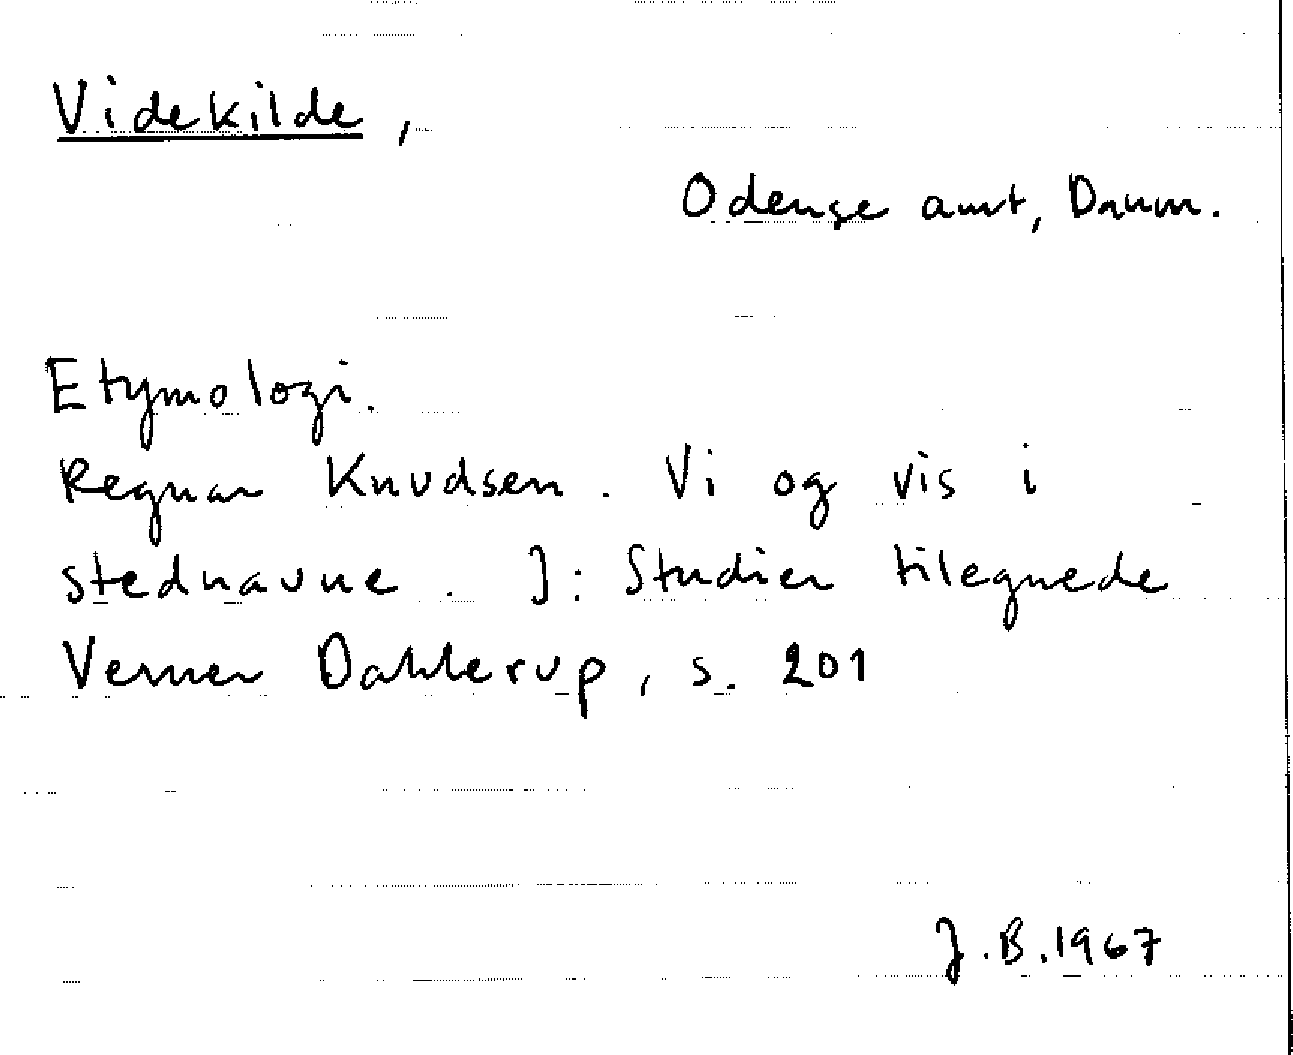 Videkilde,
Odense amt, Danm.
Etymologi.
Regnar Knudsen. Vi og vis i
stednavne. I: Studier tilegnede
Verner Dahlerup, s. 201
J.B. 1967